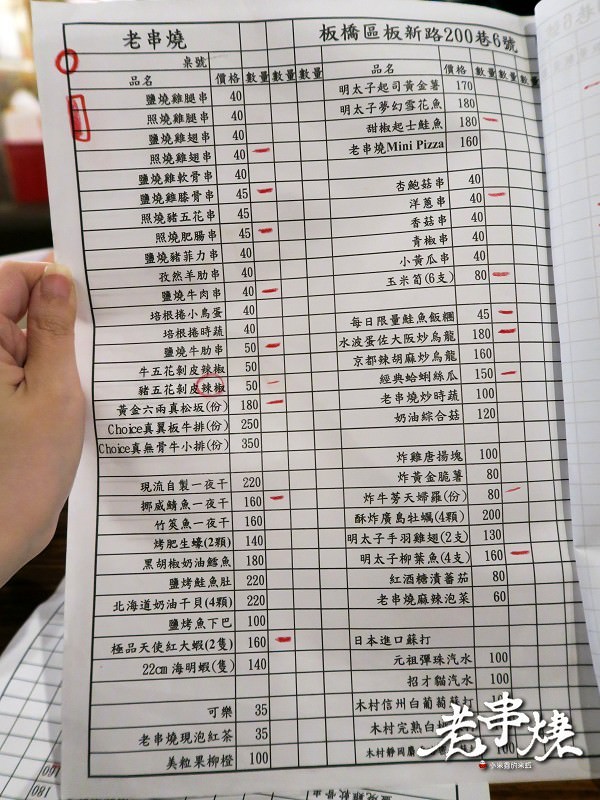 老串燒
板橋區板新路200巷6號
桌號
品名 價格 數量 數量 數量
鹽燒雞腿串 40
照燒雞腿串 40
鹽燒雞翅串 40
照燒雞翅串 40
鹽燒雞軟骨串 40
鹽燒雞膝骨串 45
照燒豬五花串 45
照燒肥腸串 45
鹽燒豬菲力串 40
孜然羊肋串 40
鹽燒牛肉串 40
培根捲小鳥蛋 40
培根捲時蔬 40
鹽燒牛肋串 50
牛五花剝皮辣椒 50
豬五花剝皮辣椒 50
黃金六兩真松坂(份) 180
Choice真翼板牛排(份) 250
Choice真無骨牛小排(份) 350
現流自製一夜干 220
挪威鯖魚一夜干 160
竹筴魚一夜干 160
烤肥生蠔(2顆) 140
黑胡椒奶油鱈魚 180
鹽烤鮭魚肚 220
北海道奶油干貝(4顆) 220
鹽烤魚下巴 100
極品天使紅大蝦(2隻) 160
22cm 海明蝦(隻) 140
可樂 35
老串燒現泡紅茶 35
美粒果柳橙 100
品名 價格 數量 數量 數量 數量
明太子起司黃金薯 170
明太子夢幻雪花魚 180
甜椒起士鮭魚 180
老串燒Mini Pizza 160
杏鮑菇串 40
洋蔥串 40
香菇串 40
青椒串 40
小黃瓜串 40
玉米筍(6支) 80
每日限量鮭魚飯糰 45
水波蛋佐大阪炒烏龍 180
京都辣胡麻炒烏龍 160
經典蛤蜊絲瓜 150
老串燒炒時蔬 100
奶油綜合菇 120
炸雞唐揚塊 100
炸黃金脆薯 80
炸牛蒡天婦羅(份) 80
酥炸廣島牡蠣(4顆) 200
明太子手羽雞翅(2支) 130
明太子柳葉魚(4支) 160
紅酒糖漬番茄 80
老串燒麻辣泡菜 60
日本進口蘇打
元祖彈珠汽水 100
招才貓汽水 100
木村信州白葡萄蘇打
木村完熟白
木村靜岡
老串燒